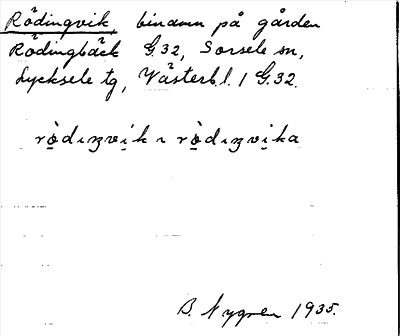 Rödingvik, binamn på gården
Rödingbäck G.32, Sorsele sn,
Lycksele tg, Västerb.l. / G.32.
rö̀dıŋvik ı rö̀dıŋvika
B. Nygren 1935.